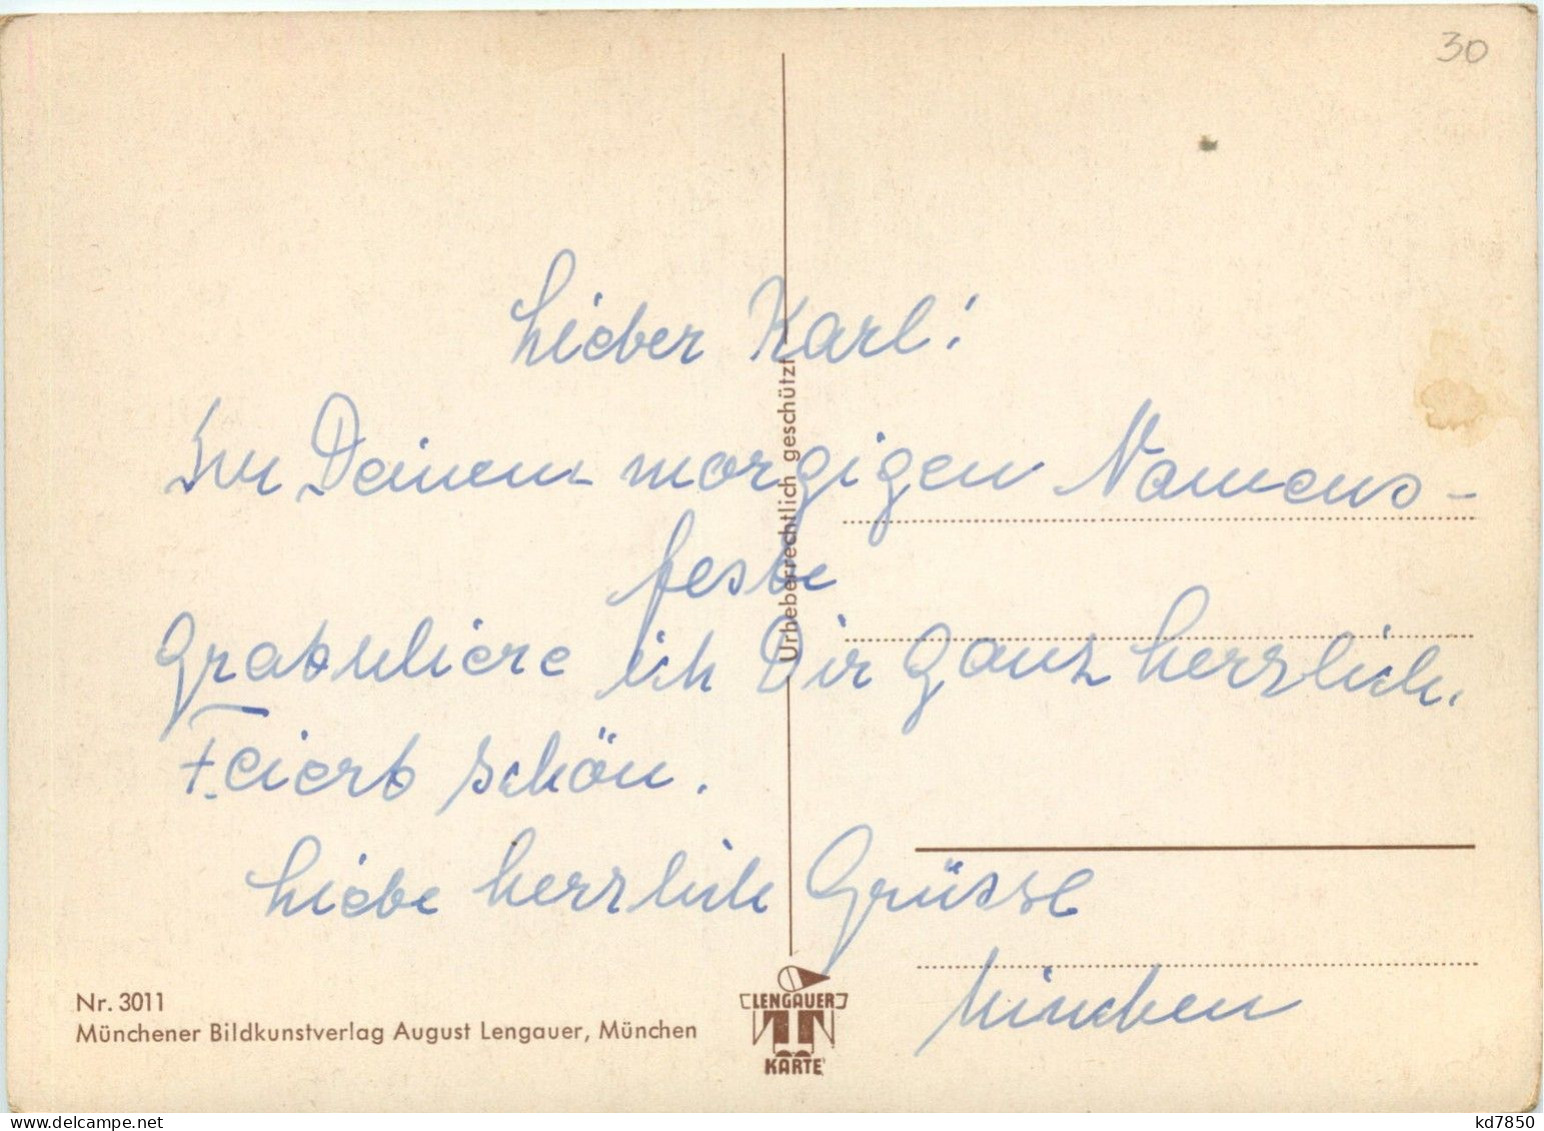 30
Lieber Karl!
Zu Deinem morgigen Namens-
feste
Gratuliere ich Dir ganz herzlich.
Feiert schön.
Liebe herzlich Grüsse
Urheberrechtlich geschützt
Nr. 3011
Münchener Bildkunstverlag August Lengauer, München
LENGAUER
KARTE
kd7850